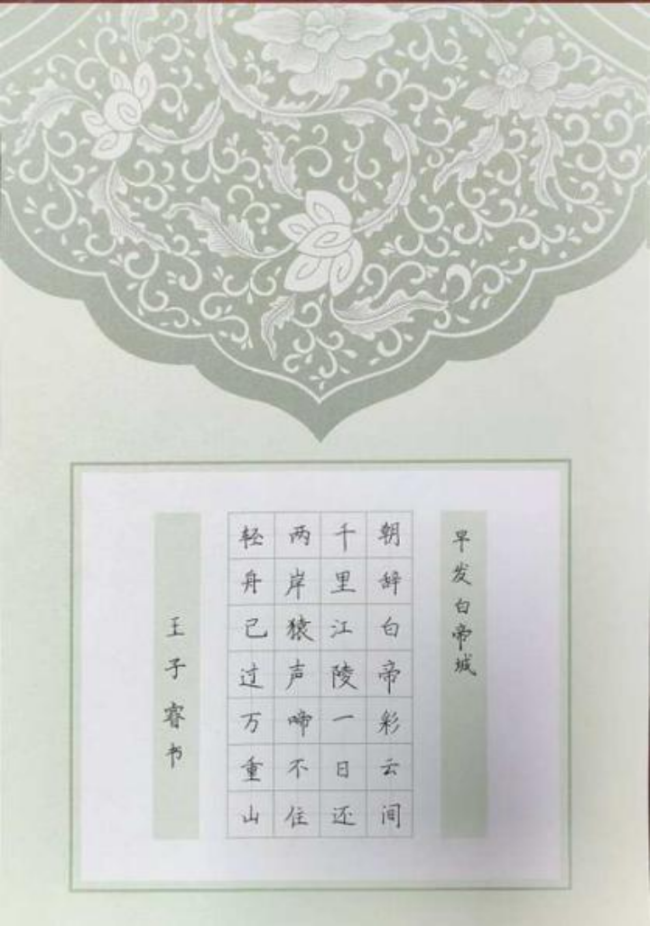 早发白帝城
朝辞白帝彩云间
千里江陵一日还
两岸猿声啼不住
轻舟已过万重山
王子睿书